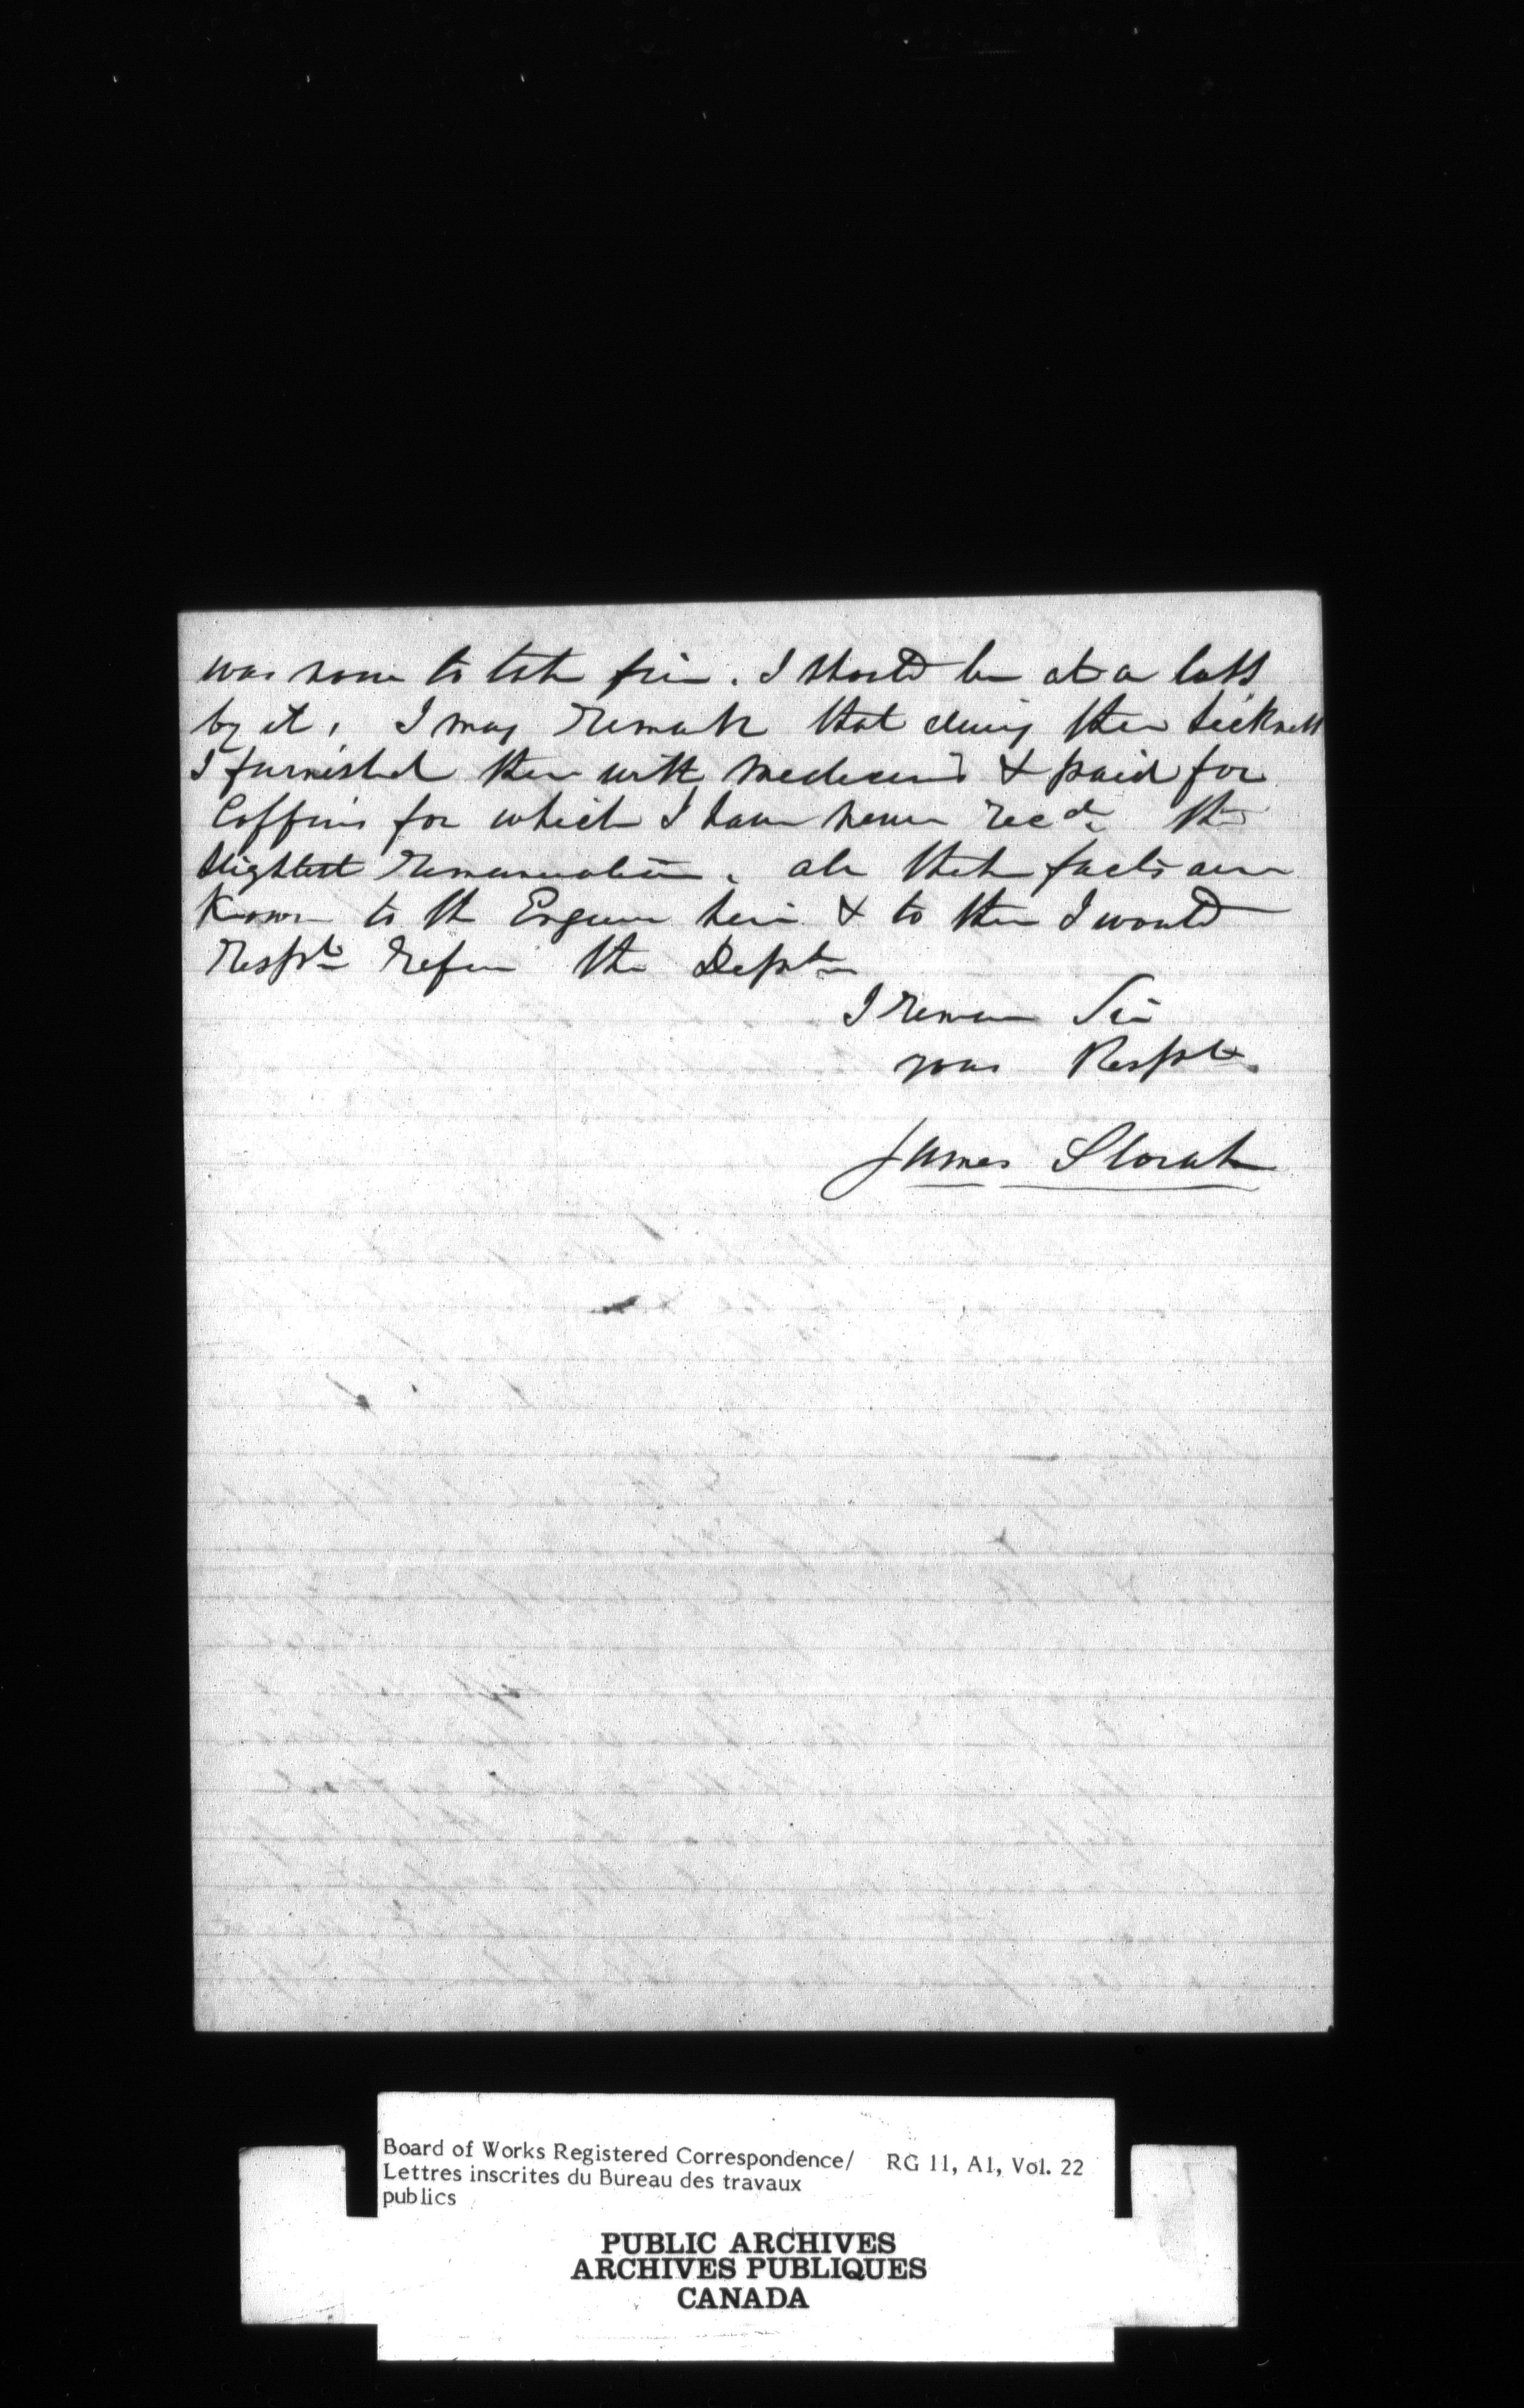 was now to take fire. I should be at a loss
by it, I may remark that during their sickness
I furnished them with medicines & paid for
Coffins for which I have never recd. the
slightest remuneration. all these facts are
Known to the Engineer here & to them I would
Respt. refer the Deptm
I remain Sir
your Respt.
James Slorah
Board of Works Registered Correspondence/ RG 11, A1, Vol. 22
Lettres inscrites du Bureau des travaux
publics
PUBLIC ARCHIVES
ARCHIVES PUBLIQUES
CANADA